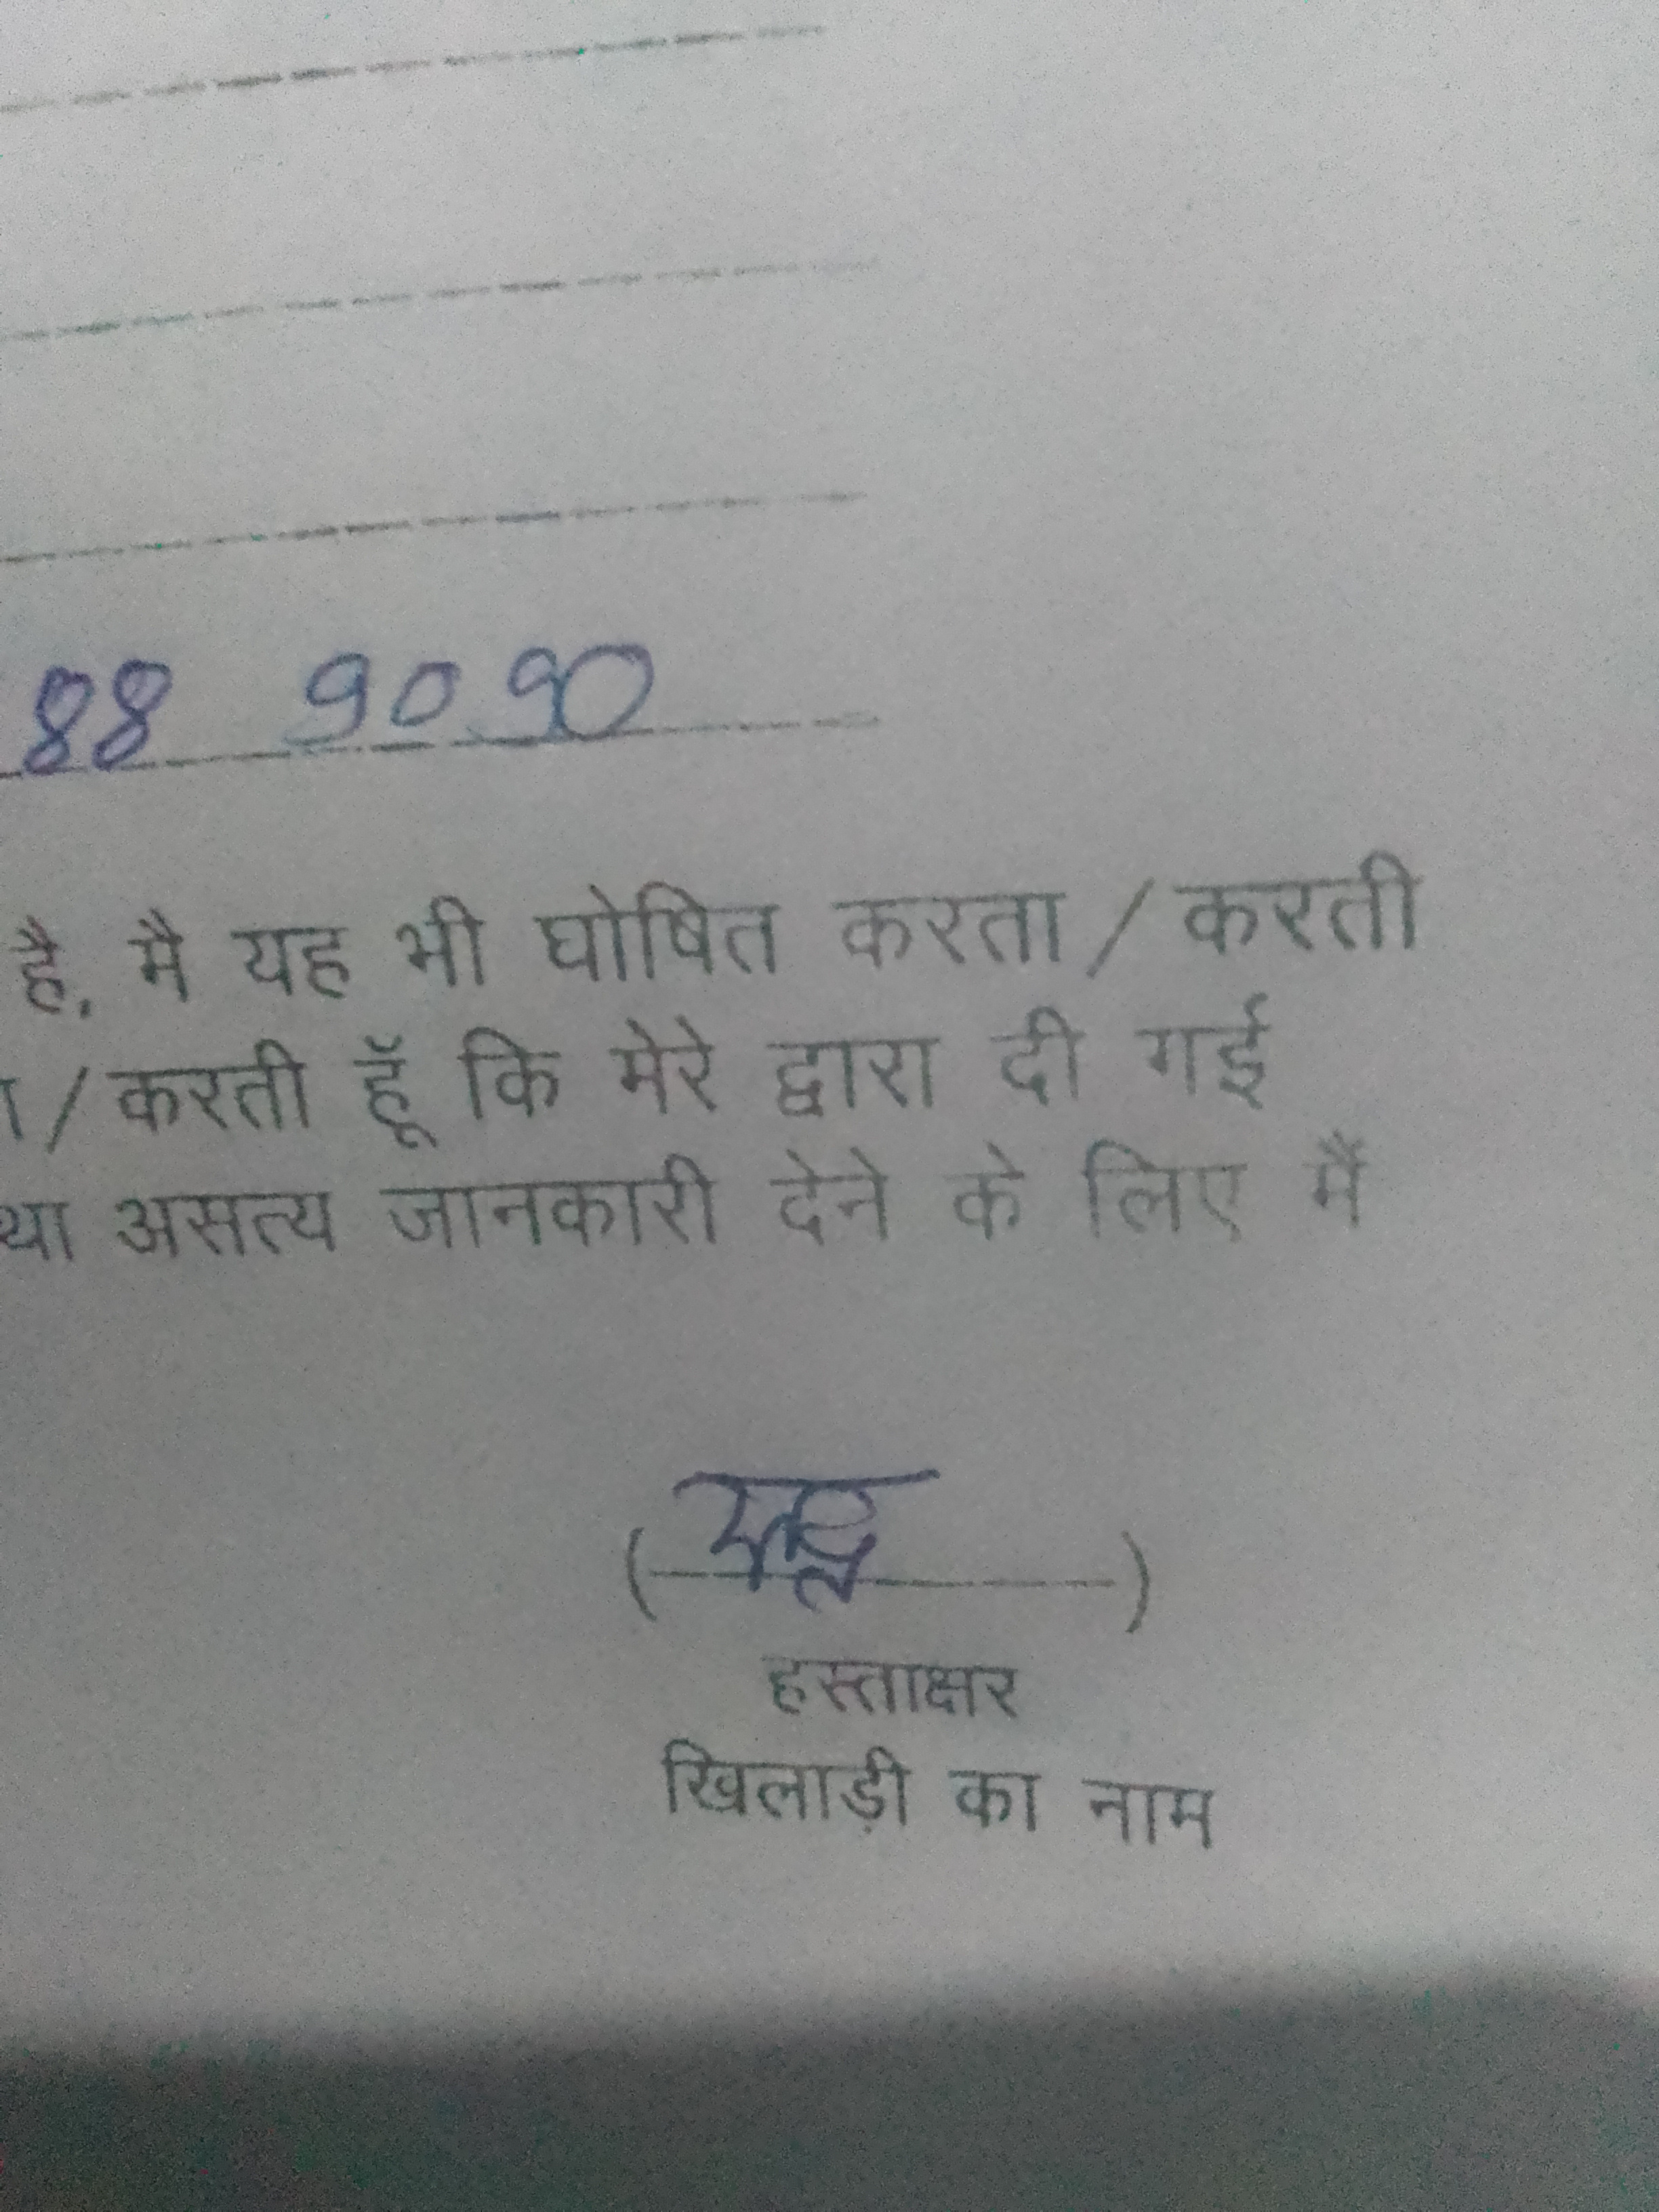 88 9090
है, मै यह भी घोषित करता / करती
/ करती हूॅ कि मेरे द्वारा दी गई
था असत्य जानकारी देने के लिए मैं
( )
हस्ताक्षर
खिलाड़ी का नाम